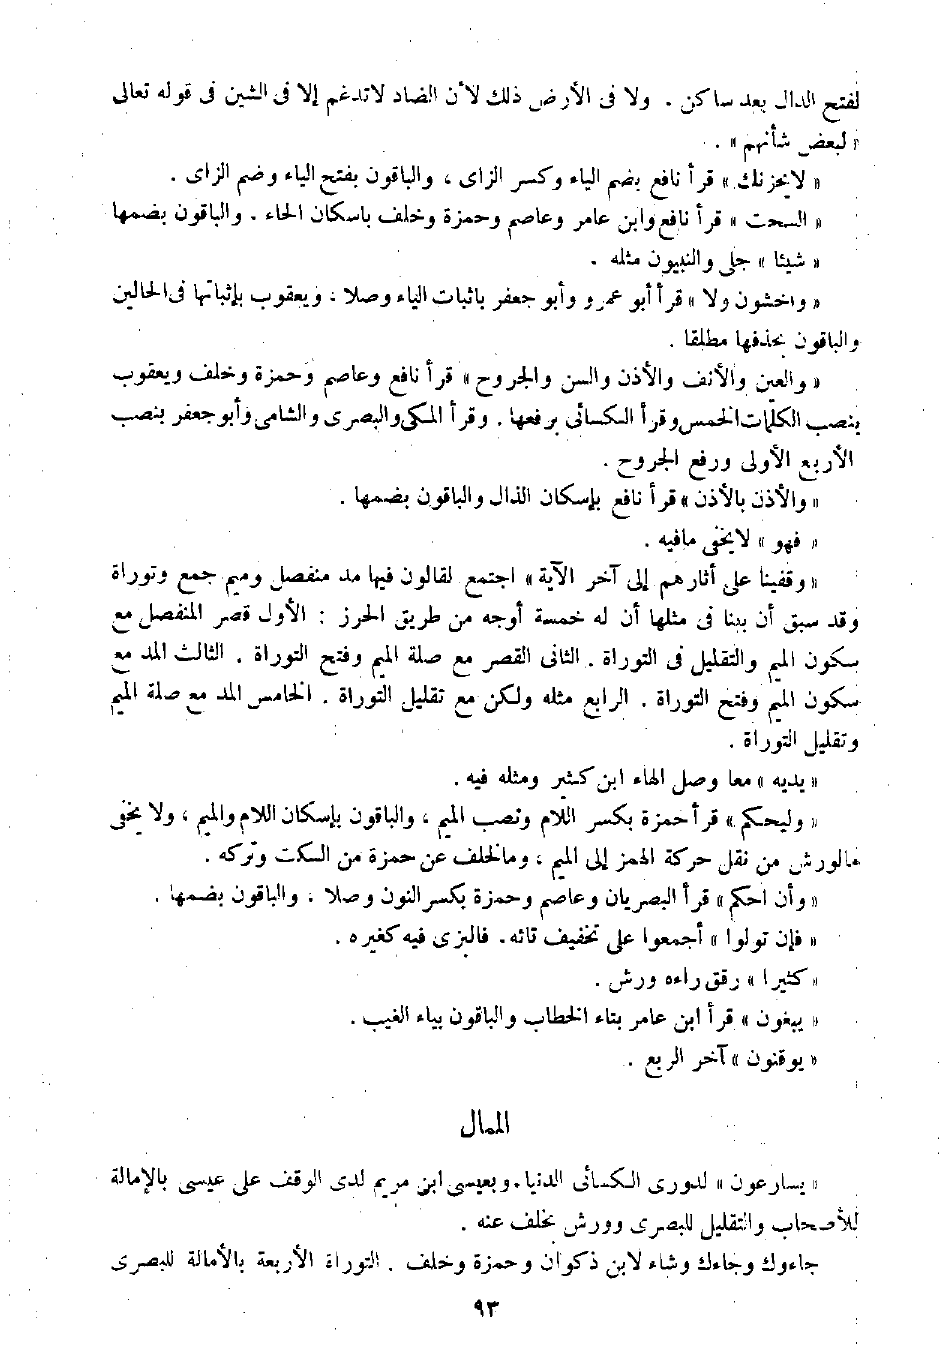 لفتح الدال بعد ساكن . ولا فى الأرض ذلك لأن الضاد لاتدغم إلا فى الشين فى قوله تعالى
« لبعض شأنهم » .
« لايحزنك » قرأ نافع بضم الياء وكسر الزاى ، والباقون بفتح الياء وضم الزاى .
« السحت » قرأ نافع وابن عامر وعاصم وحمزة وخلف باسكان الحاء . والباقون بضمها
« شيئا » جلى والنبيون مثله .
« واخشون ولا » قرأ أبو عمرو وأبو جعفر باثبات الياء وصلا ، ويعقوب بإثباتها فى الحالين
والباقون بحذفها مطلقا .
« والعين والأنف والأذن والسن والجروح » قرأ نافع وعاصم وحمزة وخلف ويعقوب
بنصب الكلمات الخمس وقرأ الكسائى برفعها . وقرأ المكى والبصرى والشامى وأبو جعفر بنصب
الأربع الأولى ورفع الجروح .
« والأذن بالأذن » قرأ نافع بإسكان الذال والباقون بضمها .
« فهو » لايخفى مافيه .
« وقفينا على أثارهم إلى آخر الآية » اجتمع لقالون فيها مد منفصل وميم جمع وتوراة
وقد سبق أن بينا فى مثلها أن له خمسة أوجه من طريق الحرز : الأول قصر المنفصل مع
سكون الميم والتقليل فى التوراة . الثانى القصر مع صلة الميم وفتح التوراة . الثالث المد مع
سكون الميم وفتح التوراة . الرابع مثله ولكن مع تقليل التوراة . الخامس المد مع صلة الميم
وتقليل التوراة .
« يديه » معا وصل الهاء ابن كثير ومثله فيه .
« وليحكم » قرأ حمزة بكسر اللام ونصب الميم ، والباقون بإسكان اللام والميم ، ولا يخفى
مالورش من نقل حركة الهمز إلى الميم ، وما لخلف عن حمزة من السكت وتركه .
« وأن احكم » قرأ البصريان وعاصم وحمزة بكسر النون وصلا ، والباقون بضمها .
« فإن تولوا » أجمعوا على تخفيف تائه . فالبزى فيه كغيره .
« كثيرا » رقق راءه ورش .
« يبغون » قرأ ابن عامر بتاء الخطاب والباقون بياء الغيب .
« يوقنون » آخر الربع .
الممال
« يسارعون » لدورى الكسائى الدنيا . وبعيسى ابن مريم لدى الوقف على عيسى بالإمالة
للأصحاب والتقليل للبصرى وورش بخلف عنه .
جاءوك وجاءك وشاء لابن ذكوان وحمزة وخلف . التوراة الأربعة بالأمالة للبصرى
٩٣